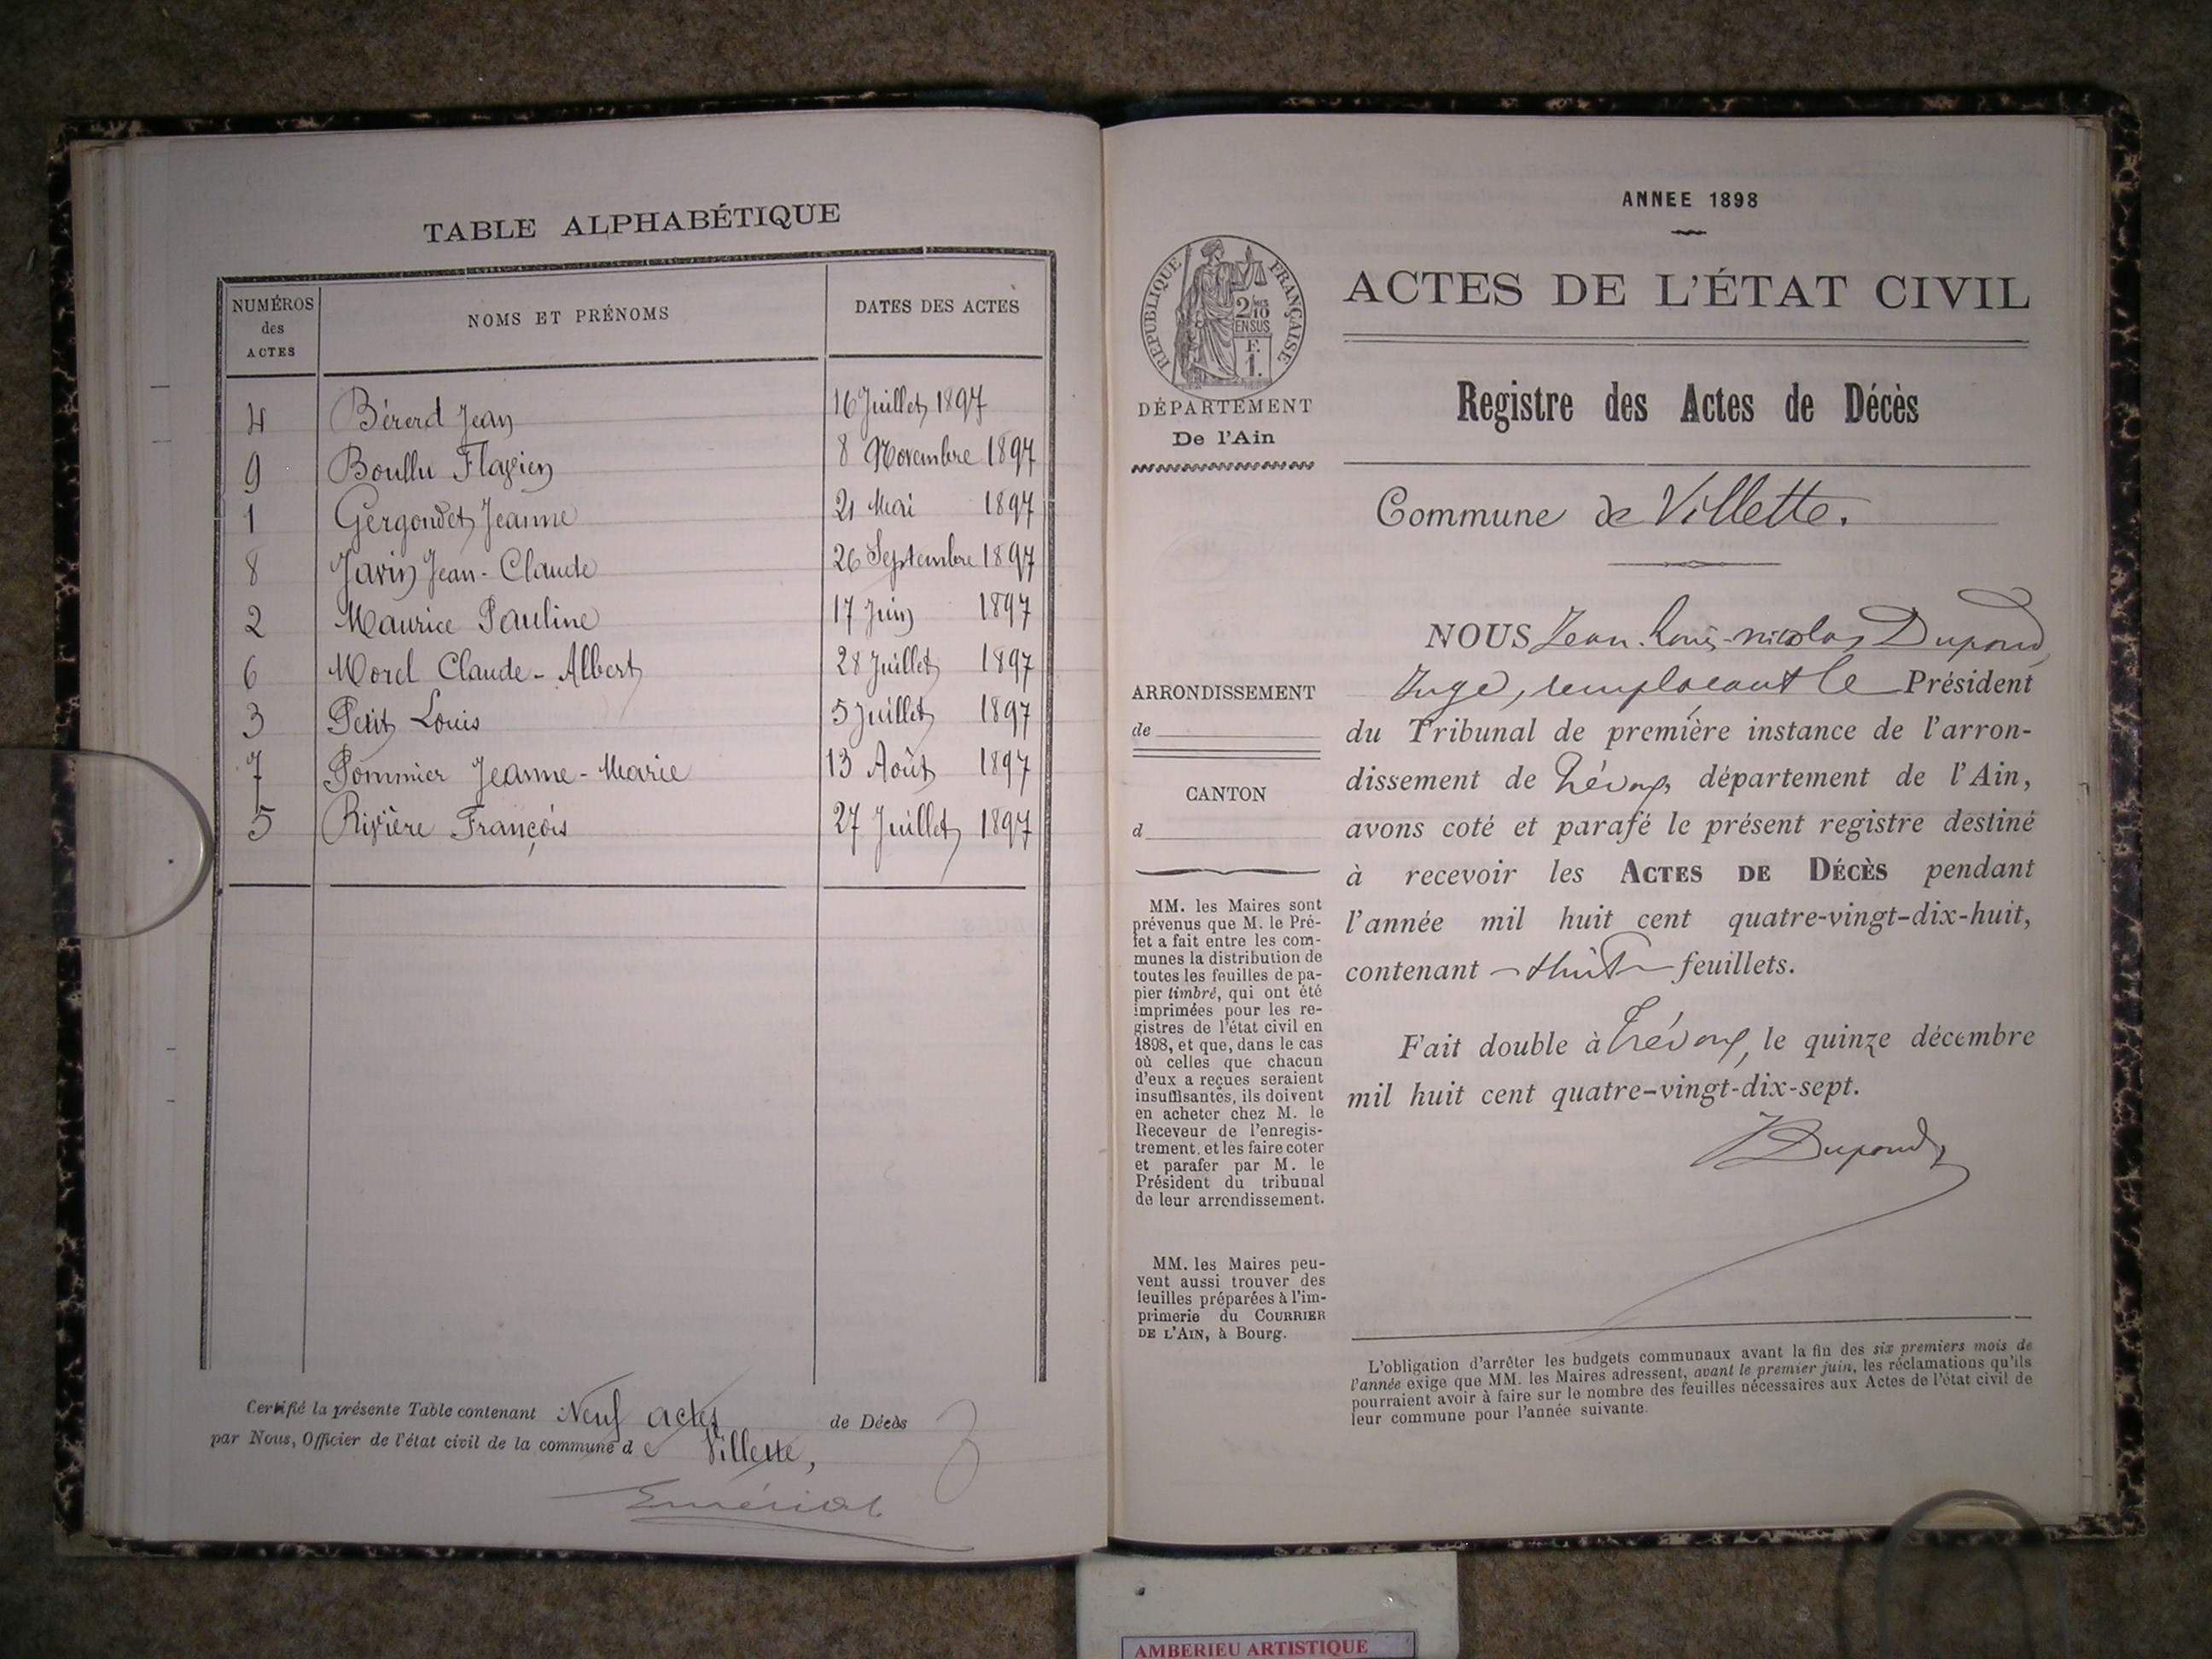 TABLE ALPHABÉTIQUE
NUMÉROS des ACTES
NOMS ET PRÉNOMS
DATES DES ACTES
4 Bérerd Jean 16 Juillet 1897
9 Boullu Flavien 8 Novembre 1897
1 Gergondet Jeanne 21 Mai 1897
8 Javin Jean-Claude 26 Septembre 1897
2 Maurice Pauline 17 Juin 1897
6 Morel Claude-Albert 28 Juillet 1897
3 Petit Louis 5 Juillet 1897
7 Pommier Jeanne-Marie 13 Août 1897
5 Rivière François 27 Juillet 1897
Certifié la présente Table contenant Neuf actes de Décès
par Nous, Officier de l'état civil de la commune de Villette,
ANNEE 1898
RÉPUBLIQUE FRANÇAISE
2/10
EN SUS
F.
1.
DÉPARTEMENT
De l'Ain
ARRONDISSEMENT
de
CANTON
d
MM. les Maires sont
prévenus que M. le Pré-
fet a fait entre les com-
munes la distribution de
toutes les feuilles de pa-
pier timbré, qui ont été
imprimées pour les re-
gistres de l'état civil en
1898, et que, dans le cas
où celles que chacun
d'eux a reçues seraient
insuffisantes, ils doivent
en acheter chez M. le
Receveur de l'enregis-
trement, et les faire coter
et parafer par M. le
Président du tribunal
de leur arrondissement.
MM. les Maires peu-
vent aussi trouver des
feuilles préparées à l'im-
primerie du COURRIER
DE L'AIN, à Bourg.
ACTES DE L'ÉTAT CIVIL
Registre des Actes de Décès
Commune de Villette.
NOUS Jean-Louis-nicolas Dupond,
Juge, remplaçant le Président
du Tribunal de première instance de l'arron-
dissement de Trévoux, département de l'Ain,
avons coté et parafé le présent registre destiné
à recevoir les ACTES DE DÉCÈS pendant
l'année mil huit cent quatre-vingt-dix-huit,
contenant huit feuillets.
Fait double à Trévoux, le quinze décembre
mil huit cent quatre-vingt-dix-sept.
Dupond
L'obligation d'arrêter les budgets communaux avant la fin des six premiers mois de
l'année exige que MM. les Maires adressent, avant le premier juin, les réclamations qu'ils
pourraient avoir à faire sur le nombre des feuilles nécessaires aux Actes de l'état civil de
leur commune pour l'année suivante.
AMBERIEU ARTISTIQUE